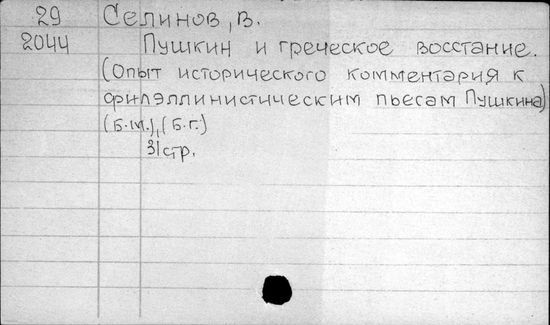 29 Селинов, В.
2044 Пушкин и греческое восстание.
(Опыт исторического комментария к
филэллинистическим пьесам Пушкина)
(Б.м.), (Б.г.)
31стр.